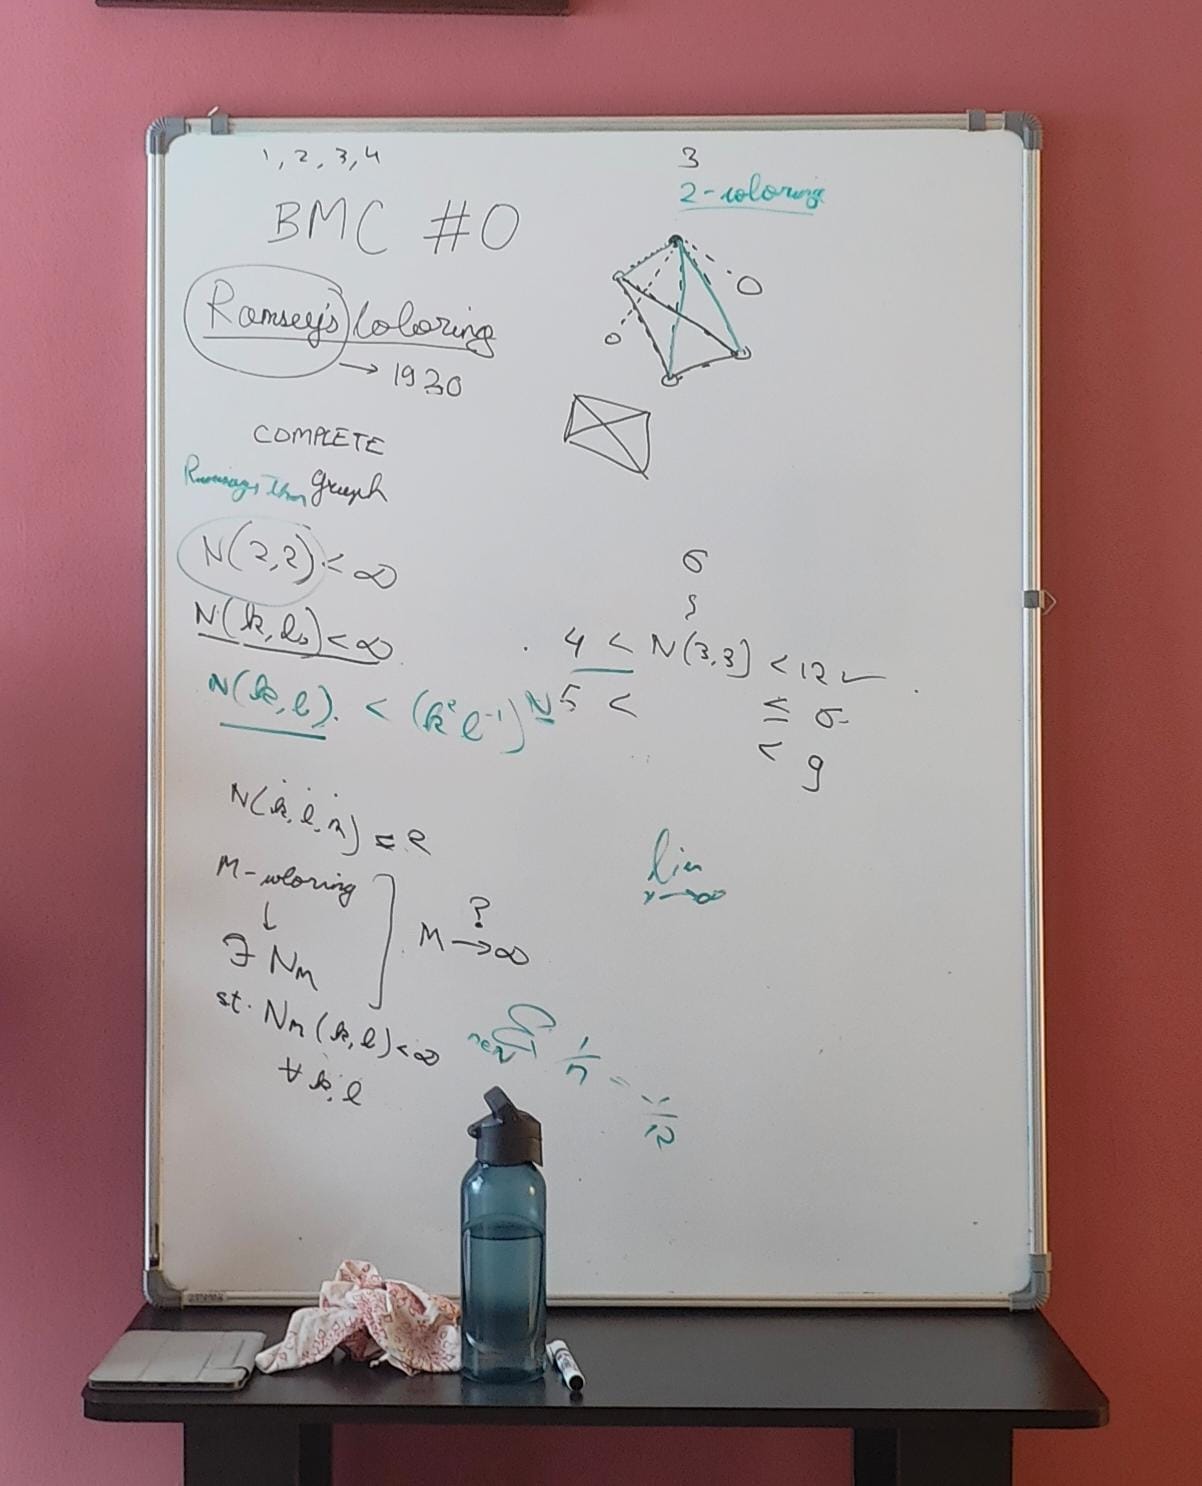 1, 2, 3, 4
BMC #0
Ramsey's Coloring
→ 1930
COMPLETE
graph
N(2,2) < ∞
N(k, l) < ∞
N(k, l) <
N(k, l, m) =
M-coloring
↓
∃ Nm
st. Nm (k, l) < ∞
∀ k, l
M → ∞
?
3
2-coloring
6
4 < N(3,3) < 12
5 <
≤ 6
< 9
lim
1/n =